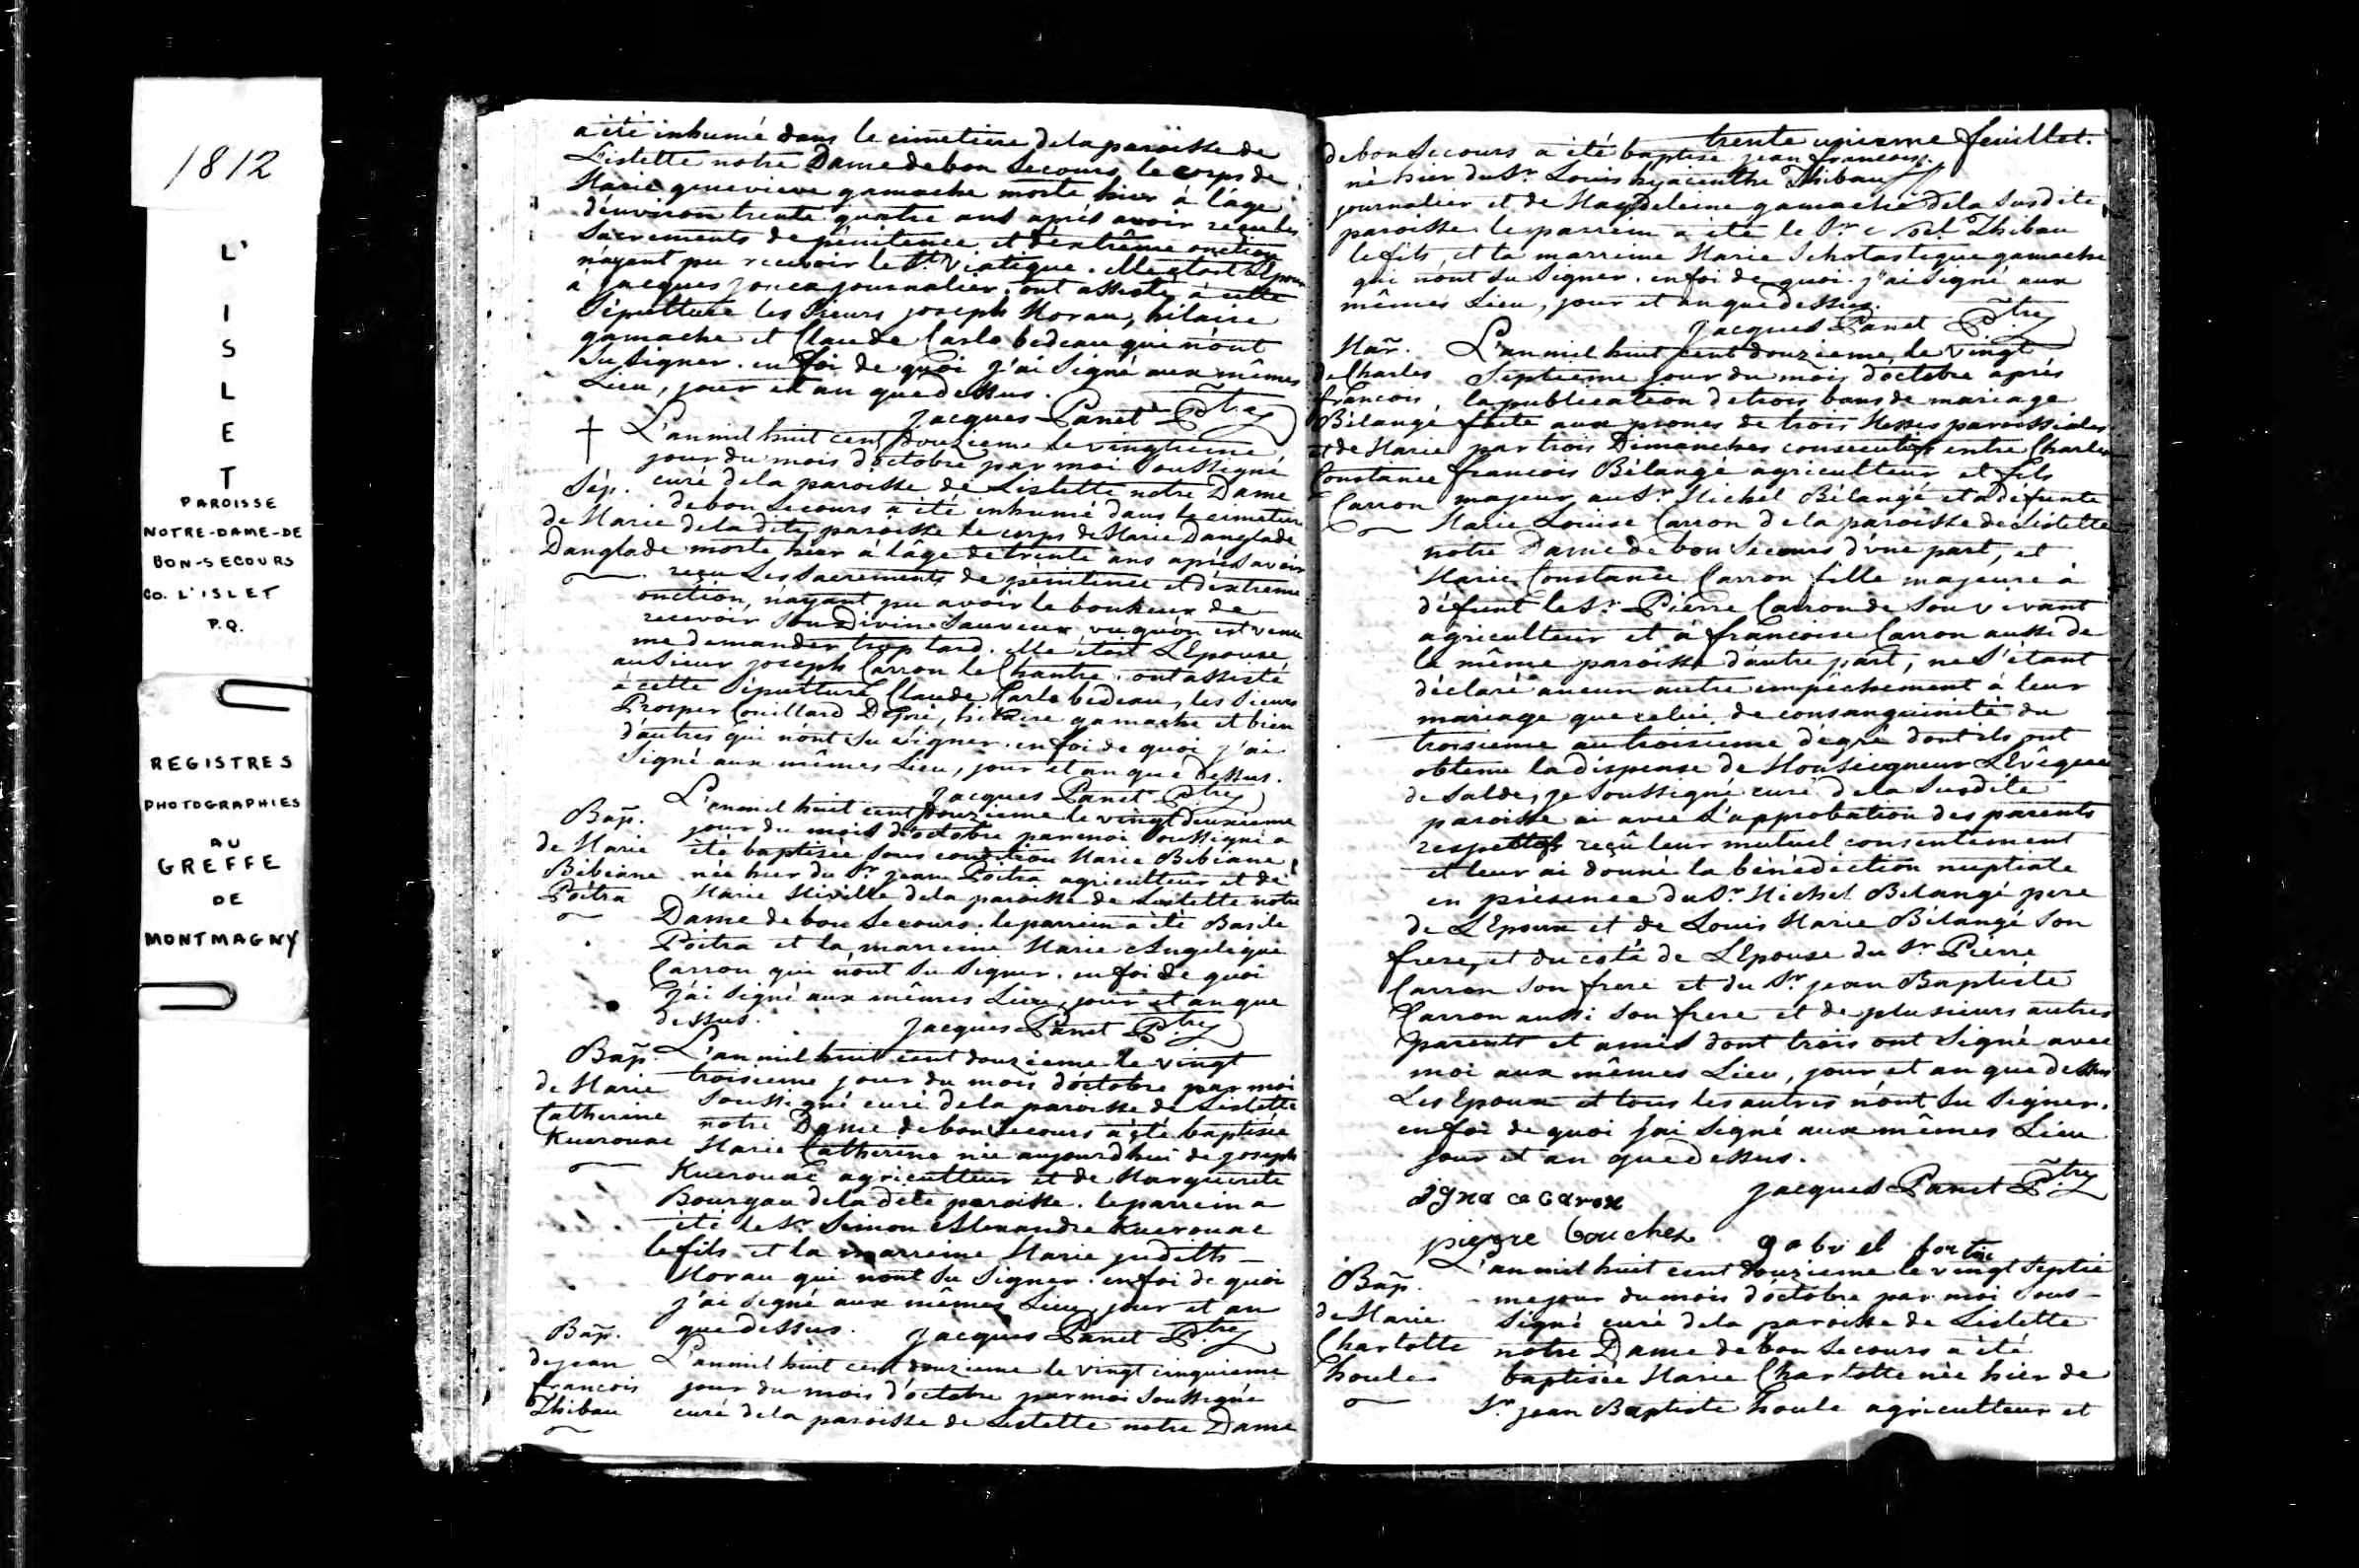 1812
L'
I
S
L
E
T
PAROISSE
NOTRE-DAME-DE
BON-SECOURS
CO. L'ISLET
P.Q.
REGISTRES
PHOTOGRAPHIES
AU
GREFFE
DE
MONTMAGNY
a été inhumé dans le cimetiere de la paroisse de
Lislette notre Dame de bon Secours le corps de
Marie genevieve gamache morte hier à l'âge
d'environ trente quatre ans aprés avoir reçu les
Sacrements de pénitence et d'extrême onction
n'ayant pu recevoir le St. Viatique. elle étoit Epouse
à jacques journalier. ont assisté à cette
Sépulture les Sieurs joseph Morau, hilaire
gamache et Claude Carlo bedeau qui n'ont
Su Signer. en foi de quoi j'ai Signé aux mêmes
Lieu, jour et an que dessus.
jacques Panet Ptre
L'an mil huit cent douzieme le vingtieme
jour du mois d'octobre par moi Soussigné
Sép. curé de la paroisse de Lislette notre Dame
de bon Secours a été inhumé dans le cimetiere
de Marie de la dite paroisse le corps de Marie Danglade
Danglade morte hier à l'âge de trente ans aprés avoir
reçu Les Sacrements de pénitence et d'extreme
onction, n'ayant pu avoir le bonheur de
recevoir Son Divin Sauveur vu qu'on est venu
me demander trop tard. elle étoit L'Epouse
au Sieur joseph Carron le Chantre. ont assisté
à cette Sépulture Claude Carlo bedeau, les Sieurs
Prosper Couillard Dépré, hilaire gamache et bien
d'autres qui n'ont Su Signer. en foi de quoi j'ai
Signé aux mêmes Lieu, jour et an que dessus.
jacques Panet Ptre
L'an mil huit cent douzieme le vingt deuxieme
Bap̃. jour du mois d'octobre par moi Soussigné a
de Marie été baptisée Sous condition Marie Bibiane
Bibiane née hier du Sr. jean Poitra agriculteur et de
Poitra Marie Miville de la paroisse de Lislette notre
Dame de bon Secours. le parrein a été Basile
Poitra et la marreine Marie Angelique
Carron qui n'ont Su Signer. en foi de quoi
j'ai Signé aux mêmes Lieu, jour et an que
dessus. jacques Panet Ptre
Bap̃. L'an mil huit cent douzieme le vingt
de Marie troisieme jour du mois d'octobre par moi
Soussigné curé de la paroisse de Lislette
Catherine notre Dame de bon Secours a été baptisée
Kuerouac Marie Catherine née aujourd'hui de joseph
Kuerouac agriculteur et de Marguerite
Bourgau de la dite paroisse. le parrein a
été le Sr. Simon Alexandre Kuerouac
le fils et la marreine Marie judith
Morau qui n'ont Su Signer. en foi de quoi
j'ai Signé aux mêmes Lieu, jour et an
que dessus. jacques Panet Ptre
Bap̃.
de jean L'an mil huit cent douzieme le vingt cinquieme
francois jour du mois d'octobre par moi Soussigné
Thibau curé de la paroisse de Lislette notre Dame
trente unieme feuillet.
de bon Secours a été baptisé jean francois
né hier du Sr. Louis hyacinthe Thibau
journalier et de Magdeleine gamache de la Susdite
paroisse. le parrein a été le Sr. Thibau
le fils, et la marreine Marie Scholastique gamache
qui n'ont Su Signer. en foi de quoi j'ai Signé aux
mêmes Lieu, jour et an que dessus.
jacques Panet Ptre
Mar̃. L'an mil huit cent douzieme, le vingt
de Charles Septieme jour du mois d'octobre aprés
francois la publication de trois bans de mariage
Bélangé faite aux prones de trois Messes paroissiales
et de Marie par trois Dimanches consecutifs entre Charles
Constance francois Bélangé agriculteur et fils
Carron majeur au Sr. Michel Bélangé et à défunte
Marie Louise Carron de la paroisse de Lislette
notre Dame de bon Secours d'une part, et
Marie Constance Carron fille majeure à
défunt le Sr. Pierre Carron de Son vivant
agriculteur et à francoise Carron aussi de
la même paroisse d'autre part, ne S'étant
déclaré aucun autre empêchement à leur
mariage que celui de consanguinité du
troisieme au troisieme dégré dont ils ont
obtenu la dispense de Monseigneur L'Evêque
de Saldes, je Soussigné curé de la Susdite
paroisse ai avec l'approbation des parents
respectifs reçû leur mutuel consentement
et leur ai donné la bénédiction nuptiale
en présence du Sr. Michel Belangé pere
de L'Epoux et de Louis Marie Bélangé Son
frere, et du coté de L'Epouse du Sr. Pierre
Carron Son frere et du Sr. jean Baptiste
Carron aussi Son frere et de plusieurs autres
parents et amis dont trois ont Signé avec
moi aux mêmes Lieu, jour et an que dessus
Les Epoux et tous les autres n'ont Su Signer.
en foi de quoi j'ai Signé aux mêmes Lieu
jour et an que dessus.
ignace caron jacques Panet Ptre
pierre boucher gabriel fortin
L'an mil huit cent douzieme le vingt Septie
Bap̃. me jour du mois d'octobre par moi Sous-
de Marie Signé curé de la paroisse de Lislette
Charlotte notre Dame de bon Secours a été
houle baptisée Marie Charlotte née hier de
Sr. jean Baptiste houle agriculteur et